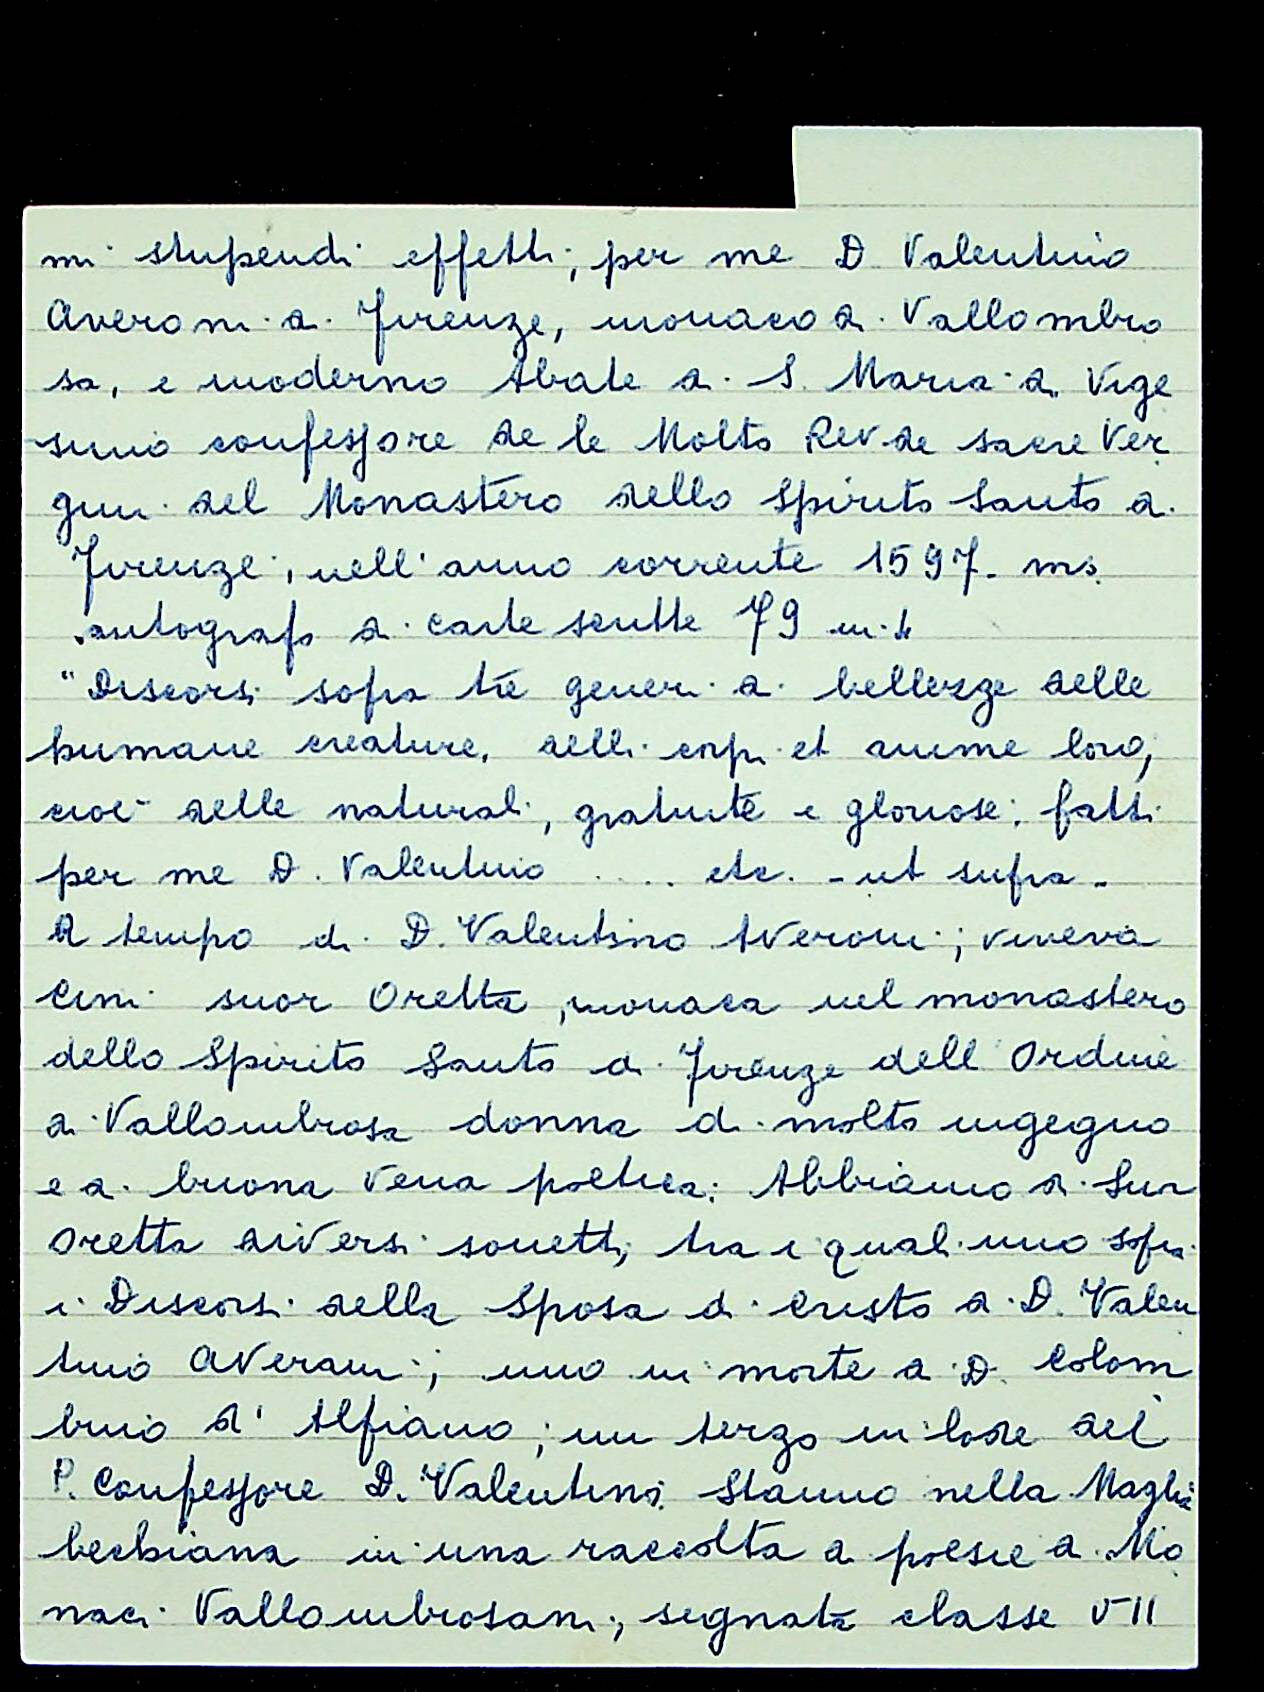 mi stupendi effetti; per me D. Valentino
Averoni di Firenze, monaco di Vallombro
sa, e moderno Abate di S. Maria di Vige
simo confessore de le Molto Rev.de sacre Ver
gini del Monastero dello Spirito Santo di
Firenze, nell'anno corrente 1597. ms.
autografo di carte scritte 79 in.4
"Discorsi sopra tre generi di bellezze delle
humane creature, delli corpi et anime loro,
cioè delle naturali, gratuite e gloriose: fatti
per me D. Valentino .... etc. - ut supra -
A tempo di D. Valentino Averoni; viveva
Cini suor Oretta, monaca nel monastero
dello Spirito Santo di Firenze dell'Ordine
di Vallombrosa donna di molto ingegno
e di buona vena poetica: Abbiamo di Suor
Oretta diversi sonetti, tra i quali uno sopra
i Discorsi della Sposa di Cristo di D. Valen
tino Averani; uno in morte di D. Colom
bino d'Alfiano; un terzo in lode del
P. Confessore D. Valentino. Stanno nella Maglia
bechiana in una raccolta di poesie di Mo
naci Vallombrosani, segnata classe VII